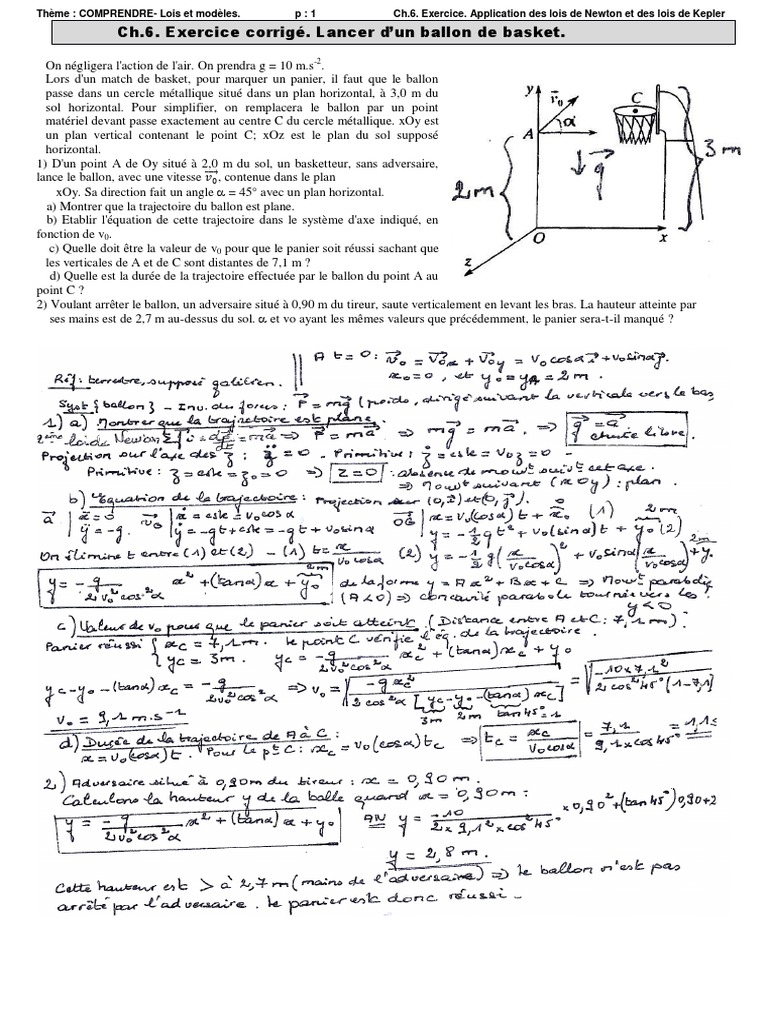 Thème : COMPRENDRE- Lois et modèles. p : 1 Ch.6. Exercice. Application des lois de Newton et des lois de Kepler
Ch.6. Exercice corrigé. Lancer d'un ballon de basket.
On négligera l'action de l'air. On prendra g = 10 m.s⁻².
Lors d'un match de basket, pour marquer un panier, il faut que le ballon
passe dans un cercle métallique situé dans un plan horizontal, à 3,0 m du
sol horizontal. Pour simplifier, on remplacera le ballon par un point
matériel devant passe exactement au centre C du cercle métallique. xOy est
un plan vertical contenant le point C; xOz est le plan du sol supposé
horizontal.
1) D'un point A de Oy situé à 2,0 m du sol, un basketteur, sans adversaire,
lance le ballon, avec une vitesse v₀, contenue dans le plan
xOy. Sa direction fait un angle α = 45° avec un plan horizontal.
a) Montrer que la trajectoire du ballon est plane.
b) Etablir l'équation de cette trajectoire dans le système d'axe indiqué, en
fonction de v₀.
c) Quelle doit être la valeur de v₀ pour que le panier soit réussi sachant que
les verticales de A et de C sont distantes de 7,1 m ?
d) Quelle est la durée de la trajectoire effectuée par le ballon du point A au
point C ?
y v₀ C
A α
3 m
g
2 m
O x
z
2) Voulant arrêter le ballon, un adversaire situé à 0,90 m du tireur, saute verticalement en levant les bras. La hauteur atteinte par
ses mains est de 2,7 m au-dessus du sol. α et vo ayant les mêmes valeurs que précédemment, le panier sera-t-il manqué ?
A t = 0 : v₀ = v₀x + v₀y = v₀ cosα i + v₀ sinα j.
Réf : terrestre, supposé galiléen. x₀ = 0, et y₀ = yA = 2 m.
Syst {ballon} - Inv. des forces : P = mg (poids, dirigé suivant la verticale vers le bas
1) a) Montrer que la trajectoire est plane.
2ème loi de Newton ⇒ P = ma ⇒ mg = ma ⇒ g = a chute libre.
Projection sur l'axe des z : z̈ = 0 - Primitive : ż = cste = v₀z = 0 -
Primitive : z = cste = z₀ = 0 ⇒ z = 0 : absence de mouvt suivt cet axe.
⇒ Mouvt suivant (xOy) : plan.
b) Equation de la trajectoire : Projection sur (O,x) et (O,y).
a | ẍ = 0 v | ẋ = cste = v₀ cosα OG | x = v₀(cosα)t + x₀ (1)
ÿ = -g. ẏ = -gt + cste = -gt + v₀ sinα y = -1/2 gt² + v₀(sinα)t + y₀ (2)
On élimine t entre (1) et (2) - (1) t = x/(v₀ cosα) (2) y = -1/2 g(x/(v₀ cosα))² + v₀ sinα(x/(v₀ cosα)) + y₀
y = -g/(2v₀² cos²α) x² + (tanα)x + y₀ de la forme y = Ax² + Bx + C ⇒ Mouvt parabolique
(A<0) ⇒ concavité parabole tournée vers les y<0
c) Valeur de v₀ pour que le panier soit atteint (Distance entre A et C : 7,1 m) :
Panier réussi { xC = 7,1 m. le point C vérifie l'éq. de la trajectoire.
yC = 3m. yC = -g/(2v₀² cos²α) xC² + (tanα)xC + y₀
yC - y₀ - (tanα)xC = -g/(2v₀² cos²α) xC² ⇒ v₀ = √(-g xC²/(2cos²α [yC - y₀ - (tanα)xC])) = √(-10×7,1²/(2cos²45°(1-7,1)))
3m 2m tan45°=1
v₀ = 9,1 m.s⁻¹
d) Durée de la trajectoire de A à C :
x = v₀(cosα)t. Pour le pt C : xC = v₀(cosα)tC ⇒ tC = xC/(v₀cosα) = 7,1/(9,1×cos45°) = 1,1s
2) Adversaire situé à 0,90m du tireur : x = 0,90m.
Calculons la hauteur y de la balle quand x = 0,90m :
y = -g/(2v₀² cos²α) x² + (tanα)x + y₀ AN y = -10/(2×9,1²×cos²45°) ×0,90² + (tan45°)0,90+2
y = 2,8 m.
Cette hauteur est > à 2,7m (mains de l'adversaire) ⇒ le ballon n'est pas
arrêté par l'adversaire. le panier est donc réussi -